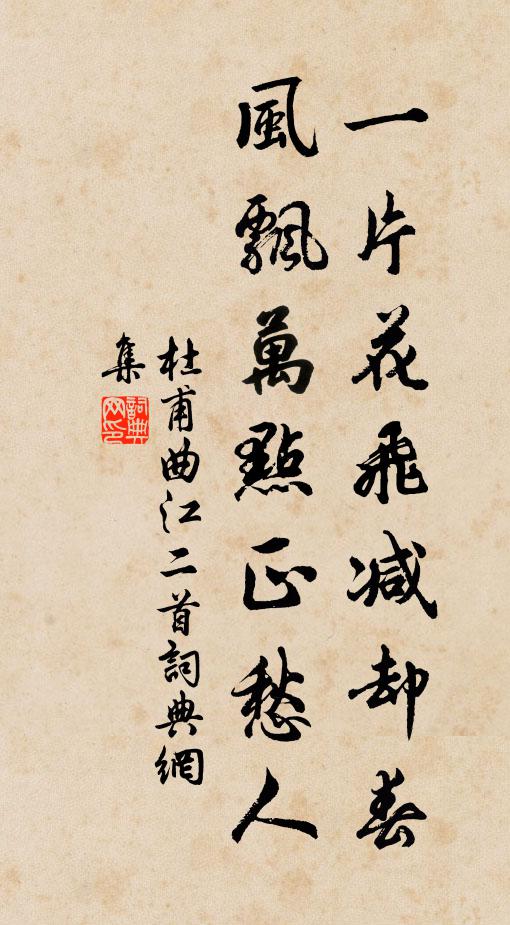 一片花飛減却春
風飄萬點正愁人
杜甫曲江二首詞典網
集
詞典
网印